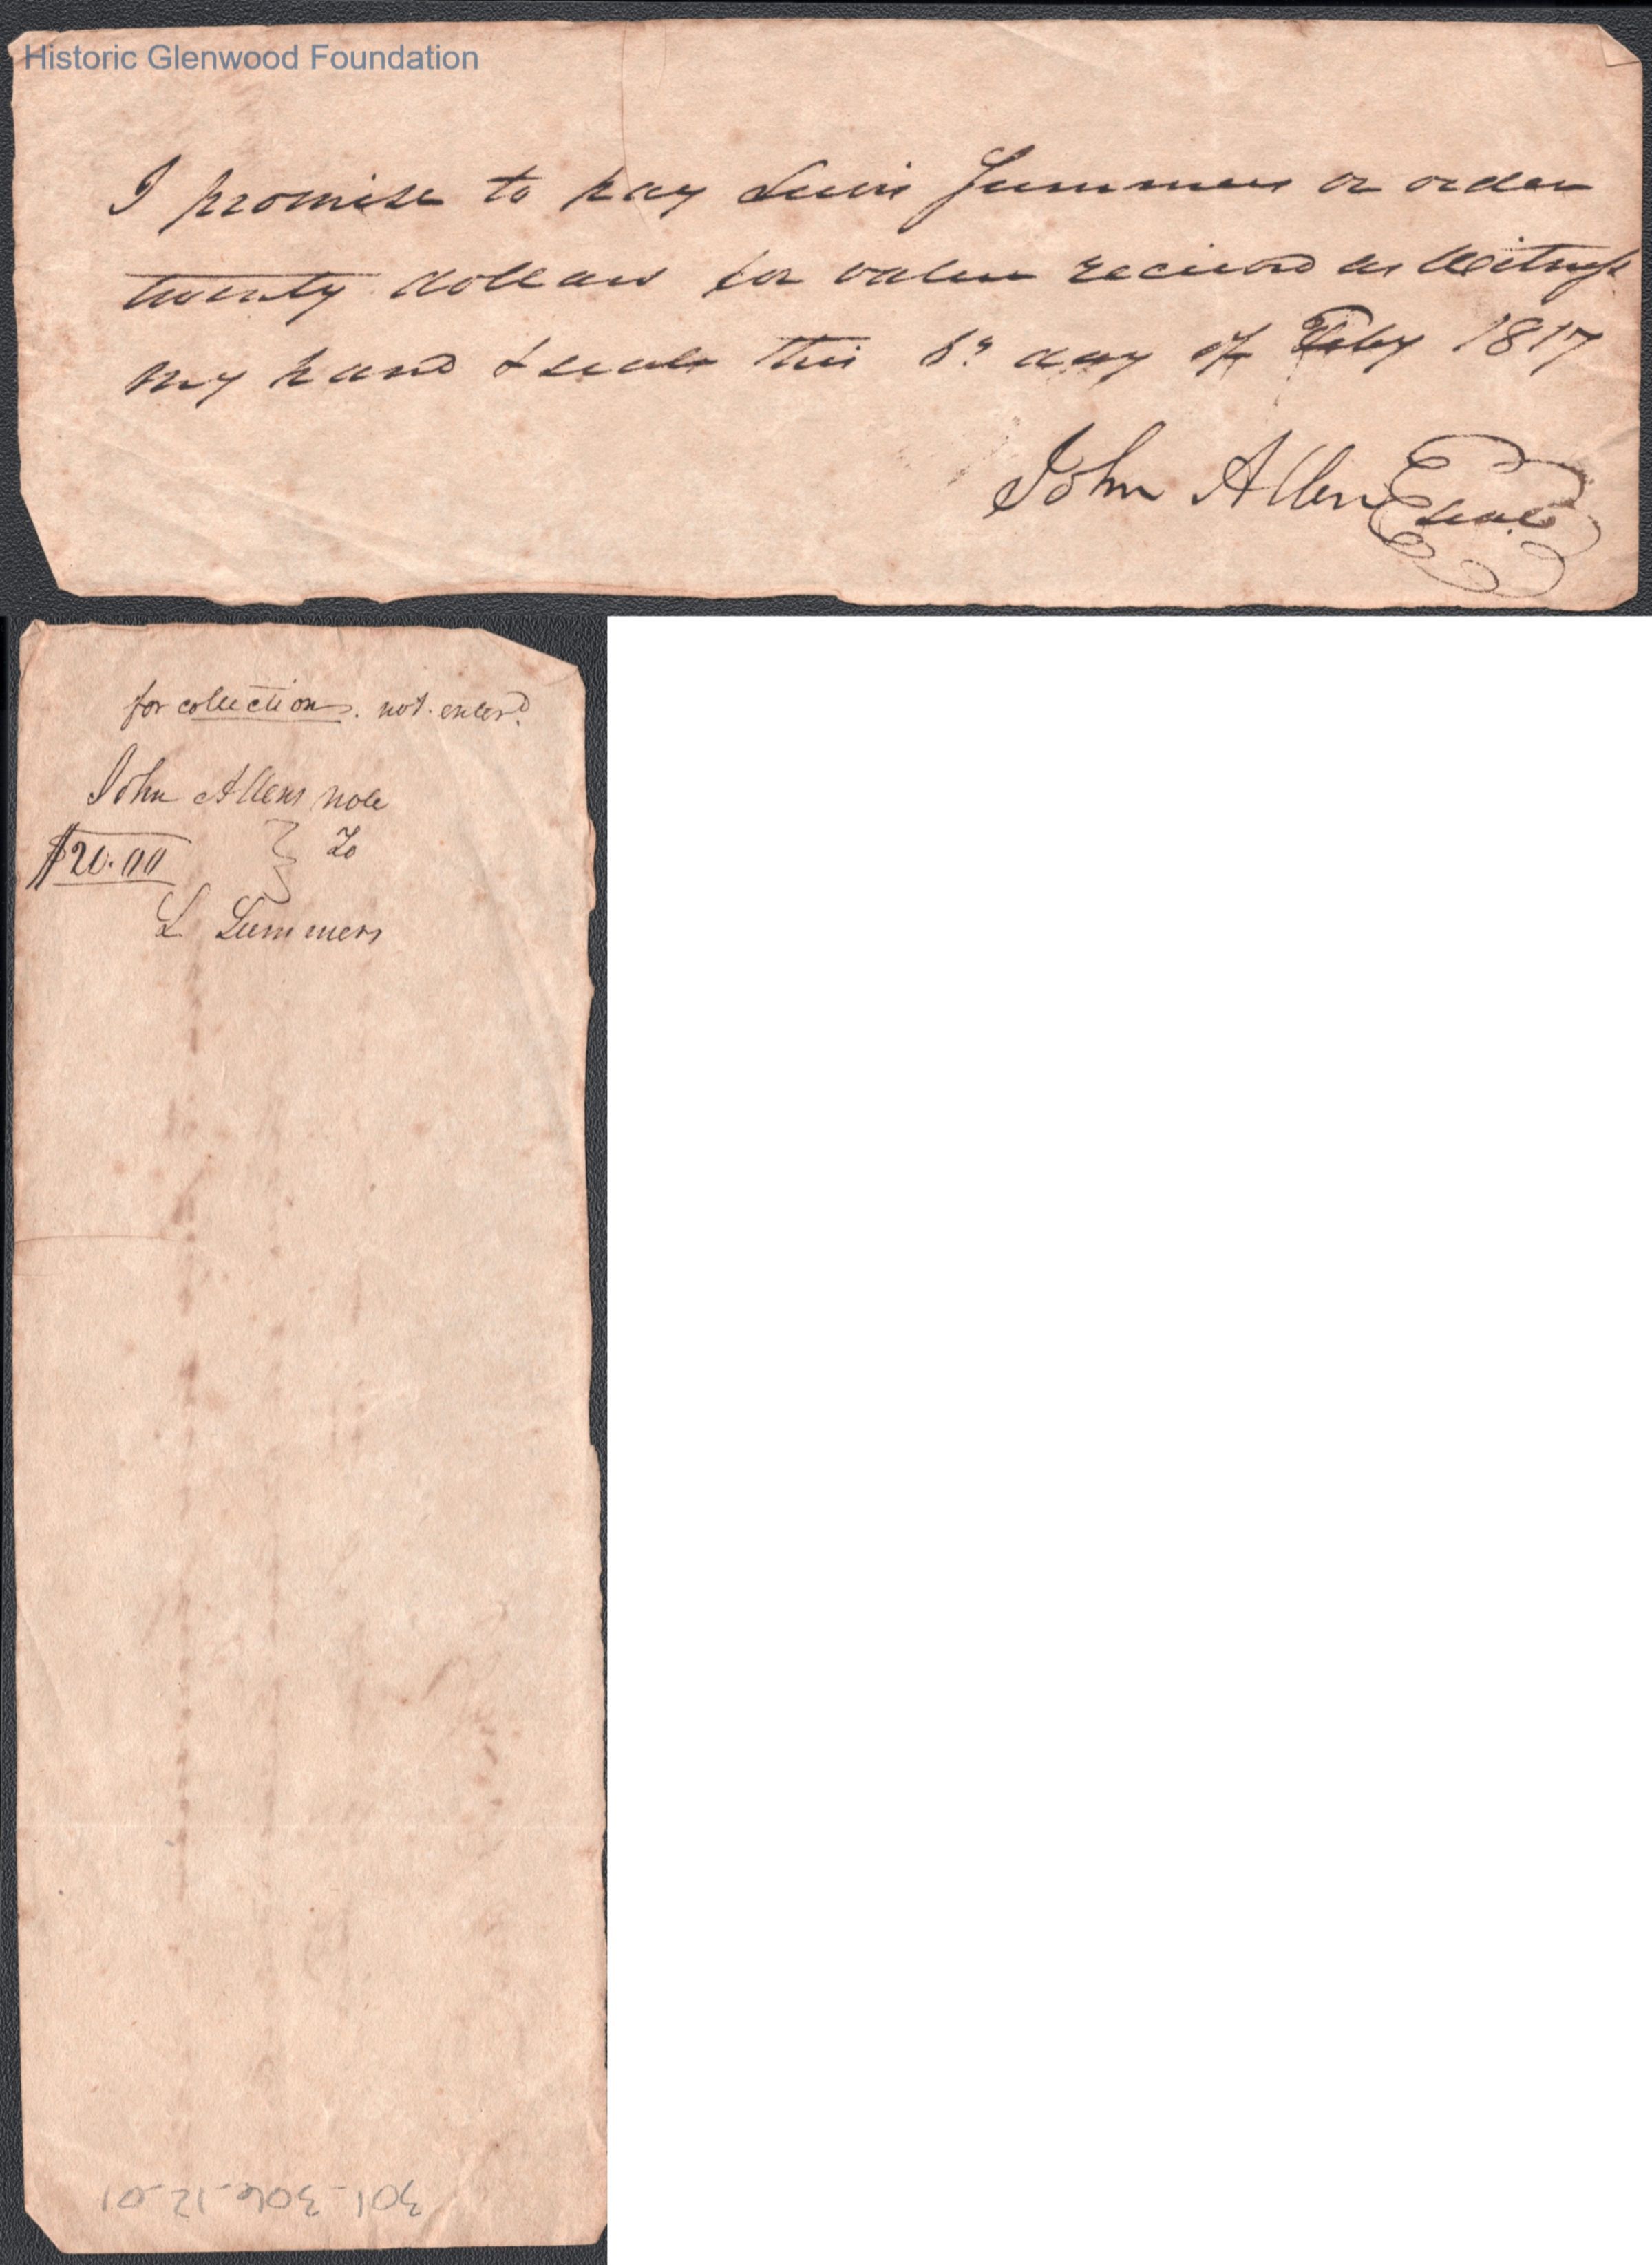 Historic Glenwood Foundation
I promise to pay Lewis Summers or order
twenty dollars for value recieved as Witness
my hand & seale this 6th day of Feby 1817
John Allen Seale
for collection. not enterd.
John Allens note
$20.00 } To
L Summers
301-306-12-01